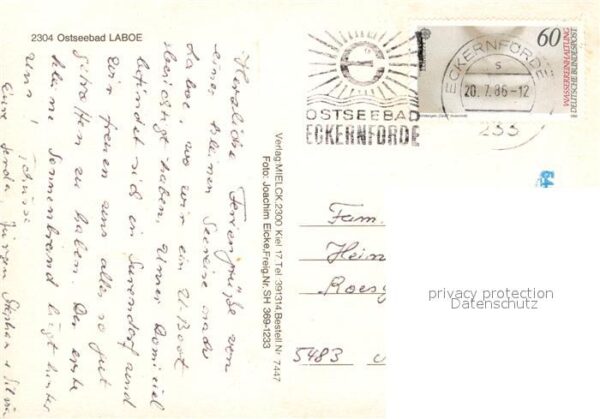 2304 Ostseebad LABOE
Herzliche Feriengrüße von
einer kleinen Seereise nach
Laboe, wo wir ein U-Boot
besichtigt haben. Unser Domiciel
befindet sich in Surendorf und
wir freuen uns alles so gut
getroffen zu haben. Der erste
kleine Sonnenbrand liegt hinter
uns! Tschüss
Eure Gerda, Jürgen, Stephan + Silvia
Verlag MIELCK, 2300 Kiel 17, Tel. 391314, Bestell Nr. 7447
Foto: Joachim Eicke, Freig. Nr. SH 369-1233
OSTSEEBAD
ECKERNFÖRDE
ECKERNFÖRDE
s
20.7.86-12
233
60
DEUTSCHE BUNDESPOST
WASSERREINHALTUNG
54
Fam.
Hein
Roes
5483
privacy protection
Datenschutz